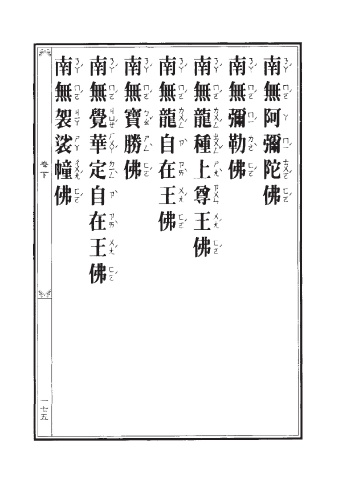 南無阿彌陀佛
南無彌勒佛
南無龍種上尊王佛
南無龍自在王佛
南無寶勝佛
南無覺華定自在王佛
南無袈裟幢佛
卷下
一七五